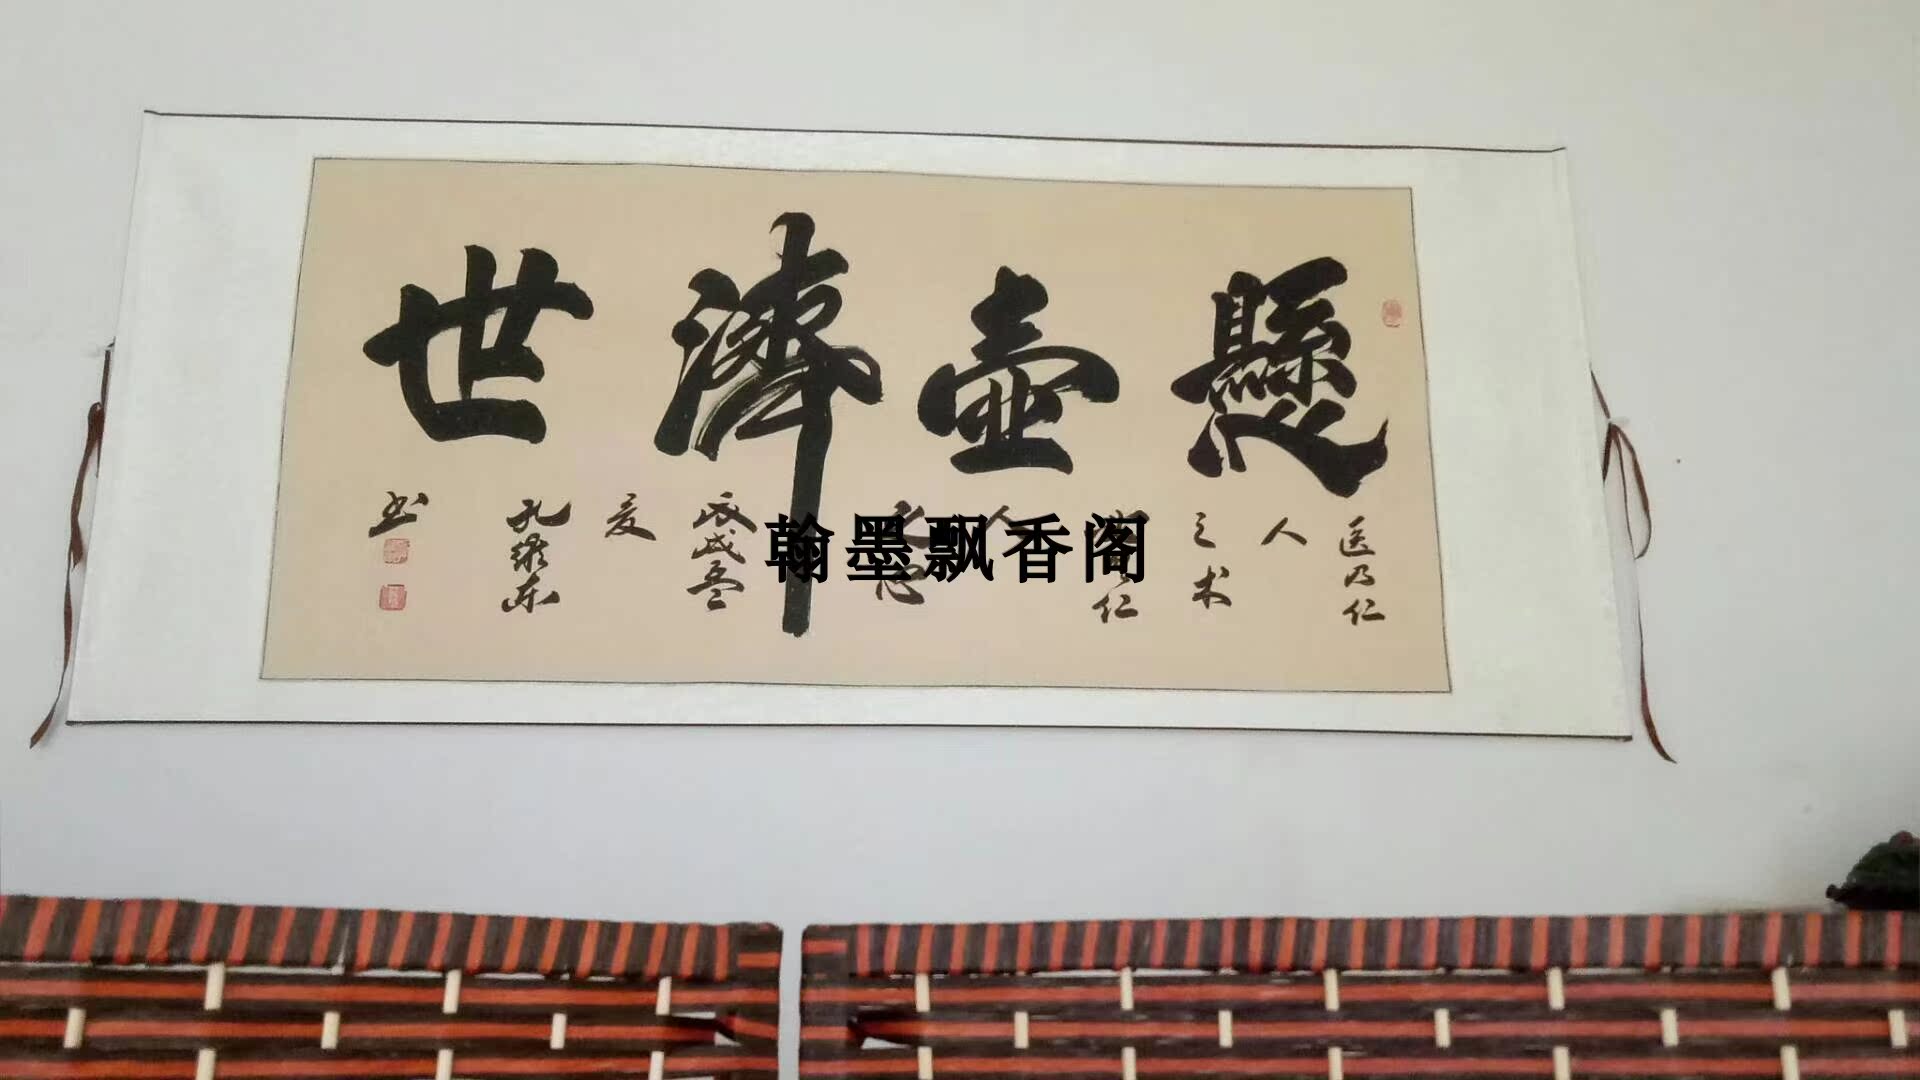 懸壺濟世
医乃仁
人
之术
仁
人
之心
戊戌冬
爱
孔维东
书
翰墨飘香阁